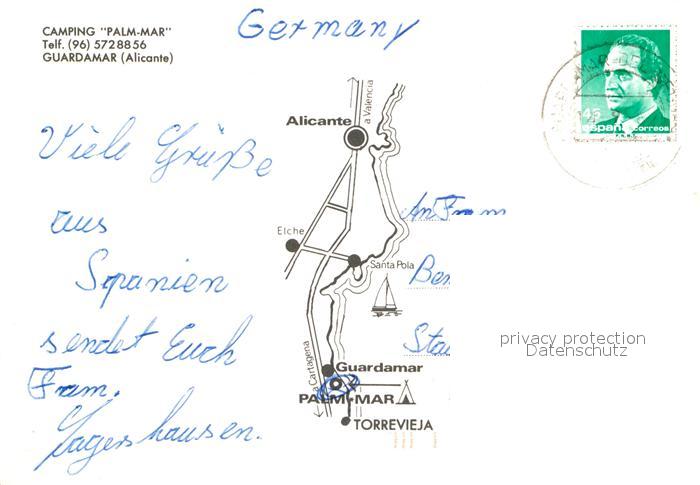 CAMPING "PALM-MAR"
Telf. (96) 5728856
GUARDAMAR (Alicante)
Germany
45
españa correos
Viele Grüße
aus
Spanien
sendet Euch
Fam.
a Valencia
Alicante
Elche
Santa Pola
a Cartagena
Guardamar
PALM-MAR
TORREVIEJA
An
privacy protection
Datenschutz